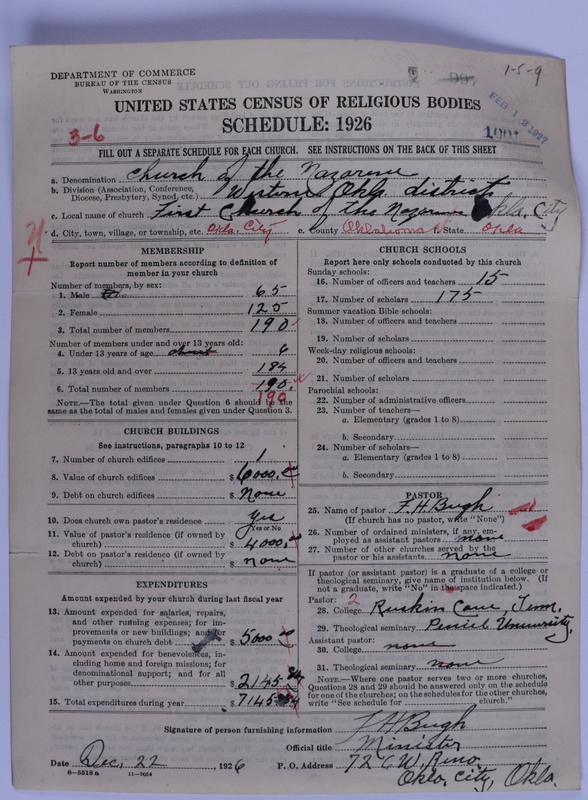 DEPARTMENT OF COMMERCE
BUREAU OF THE CENSUS
WASHINGTON
1-5-9
FEB 12 1927
UNITED STATES CENSUS OF RELIGIOUS BODIES
SCHEDULE: 1926
3-6
FILL OUT A SEPARATE SCHEDULE FOR EACH CHURCH. SEE INSTRUCTIONS ON THE BACK OF THIS SHEET
a. Denomination Church of the Nazarene
b. Division (Association, Conference, Diocese, Presbytery, Synod, etc.) Western Okla district
c. Local name of church First Church of the Nazarene Okla. City
d. City, town, village, or township, etc. Okla. City e. County Oklahoma f. State Okla
MEMBERSHIP
Report number of members according to definition of
member in your church
Number of members, by sex:
1. Male 65
2. Female 125
3. Total number of members 190
Number of members under and over 13 years old:
4. Under 13 years of age about 6
5. 13 years old and over 184
6. Total number of members 190.
190
NOTE.—The total given under Question 6 should be the
same as the total of males and females given under Question 3.
CHURCH BUILDINGS
See instructions, paragraphs 10 to 12
7. Number of church edifices 1
8. Value of church edifices $6000.
9. Debt on church edifices $ none
10. Does church own pastor's residence yes
Yes or No
11. Value of pastor's residence (if owned by
church) $4000.
12. Debt on pastor's residence (if owned by
church) $ none
EXPENDITURES
Amount expended by your church during last fiscal year
13. Amount expended for salaries, repairs,
and other running expense; for im-
provements or new buildings; and for
payments on church debt $5000
14. Amount expended for benevolences, in-
cluding home and foreign missions; for
denominational support; and for all
other purposes $2145.
15. Total expenditures during year $7145
CHURCH SCHOOLS
Report here only schools conducted by this church
Sunday schools:
16. Number of officers and teachers 15
17. Number of scholars 175
Summer vacation Bible schools:
18. Number of officers and teachers
19. Number of scholars
Week-day religious schools:
20. Number of officers and teachers
21. Number of scholars
Parochial schools:
22. Number of administrative officers
23. Number of teachers—
a. Elementary (grades 1 to 8)
b. Secondary
24. Number of scholars—
a. Elementary (grades 1 to 8)
b. Secondary
PASTOR
25. Name of pastor F. H. Bugh
(If church has no pastor, write "None")
26. Number of ordained ministers, if any, em-
ployed as assistant pastors none
27. Number of other churches served by the
pastor or his assistants none
If pastor (or assistant pastor) is a graduate of a college or
theological seminary, give name of institution below. (If
not a graduate, write "No" in the space indicated.)
Pastor: 2
28. College Ruskin Cave, Tenn.
29. Theological seminary Peniel University,
Assistant pastor:
30. College none
31. Theological seminary none
NOTE.—Where one pastor serves two or more churches,
Questions 28 and 29 should be answered only on the schedule
for one of the churches; on the schedules for the other churches,
write "See schedule for church."
Signature of person furnishing information F H Bugh
Official title Minister
Date Dec. 22, 1926 P. O. Address 726 W. Reno.
8-5518a 11-9054 Okla. City, Okla.